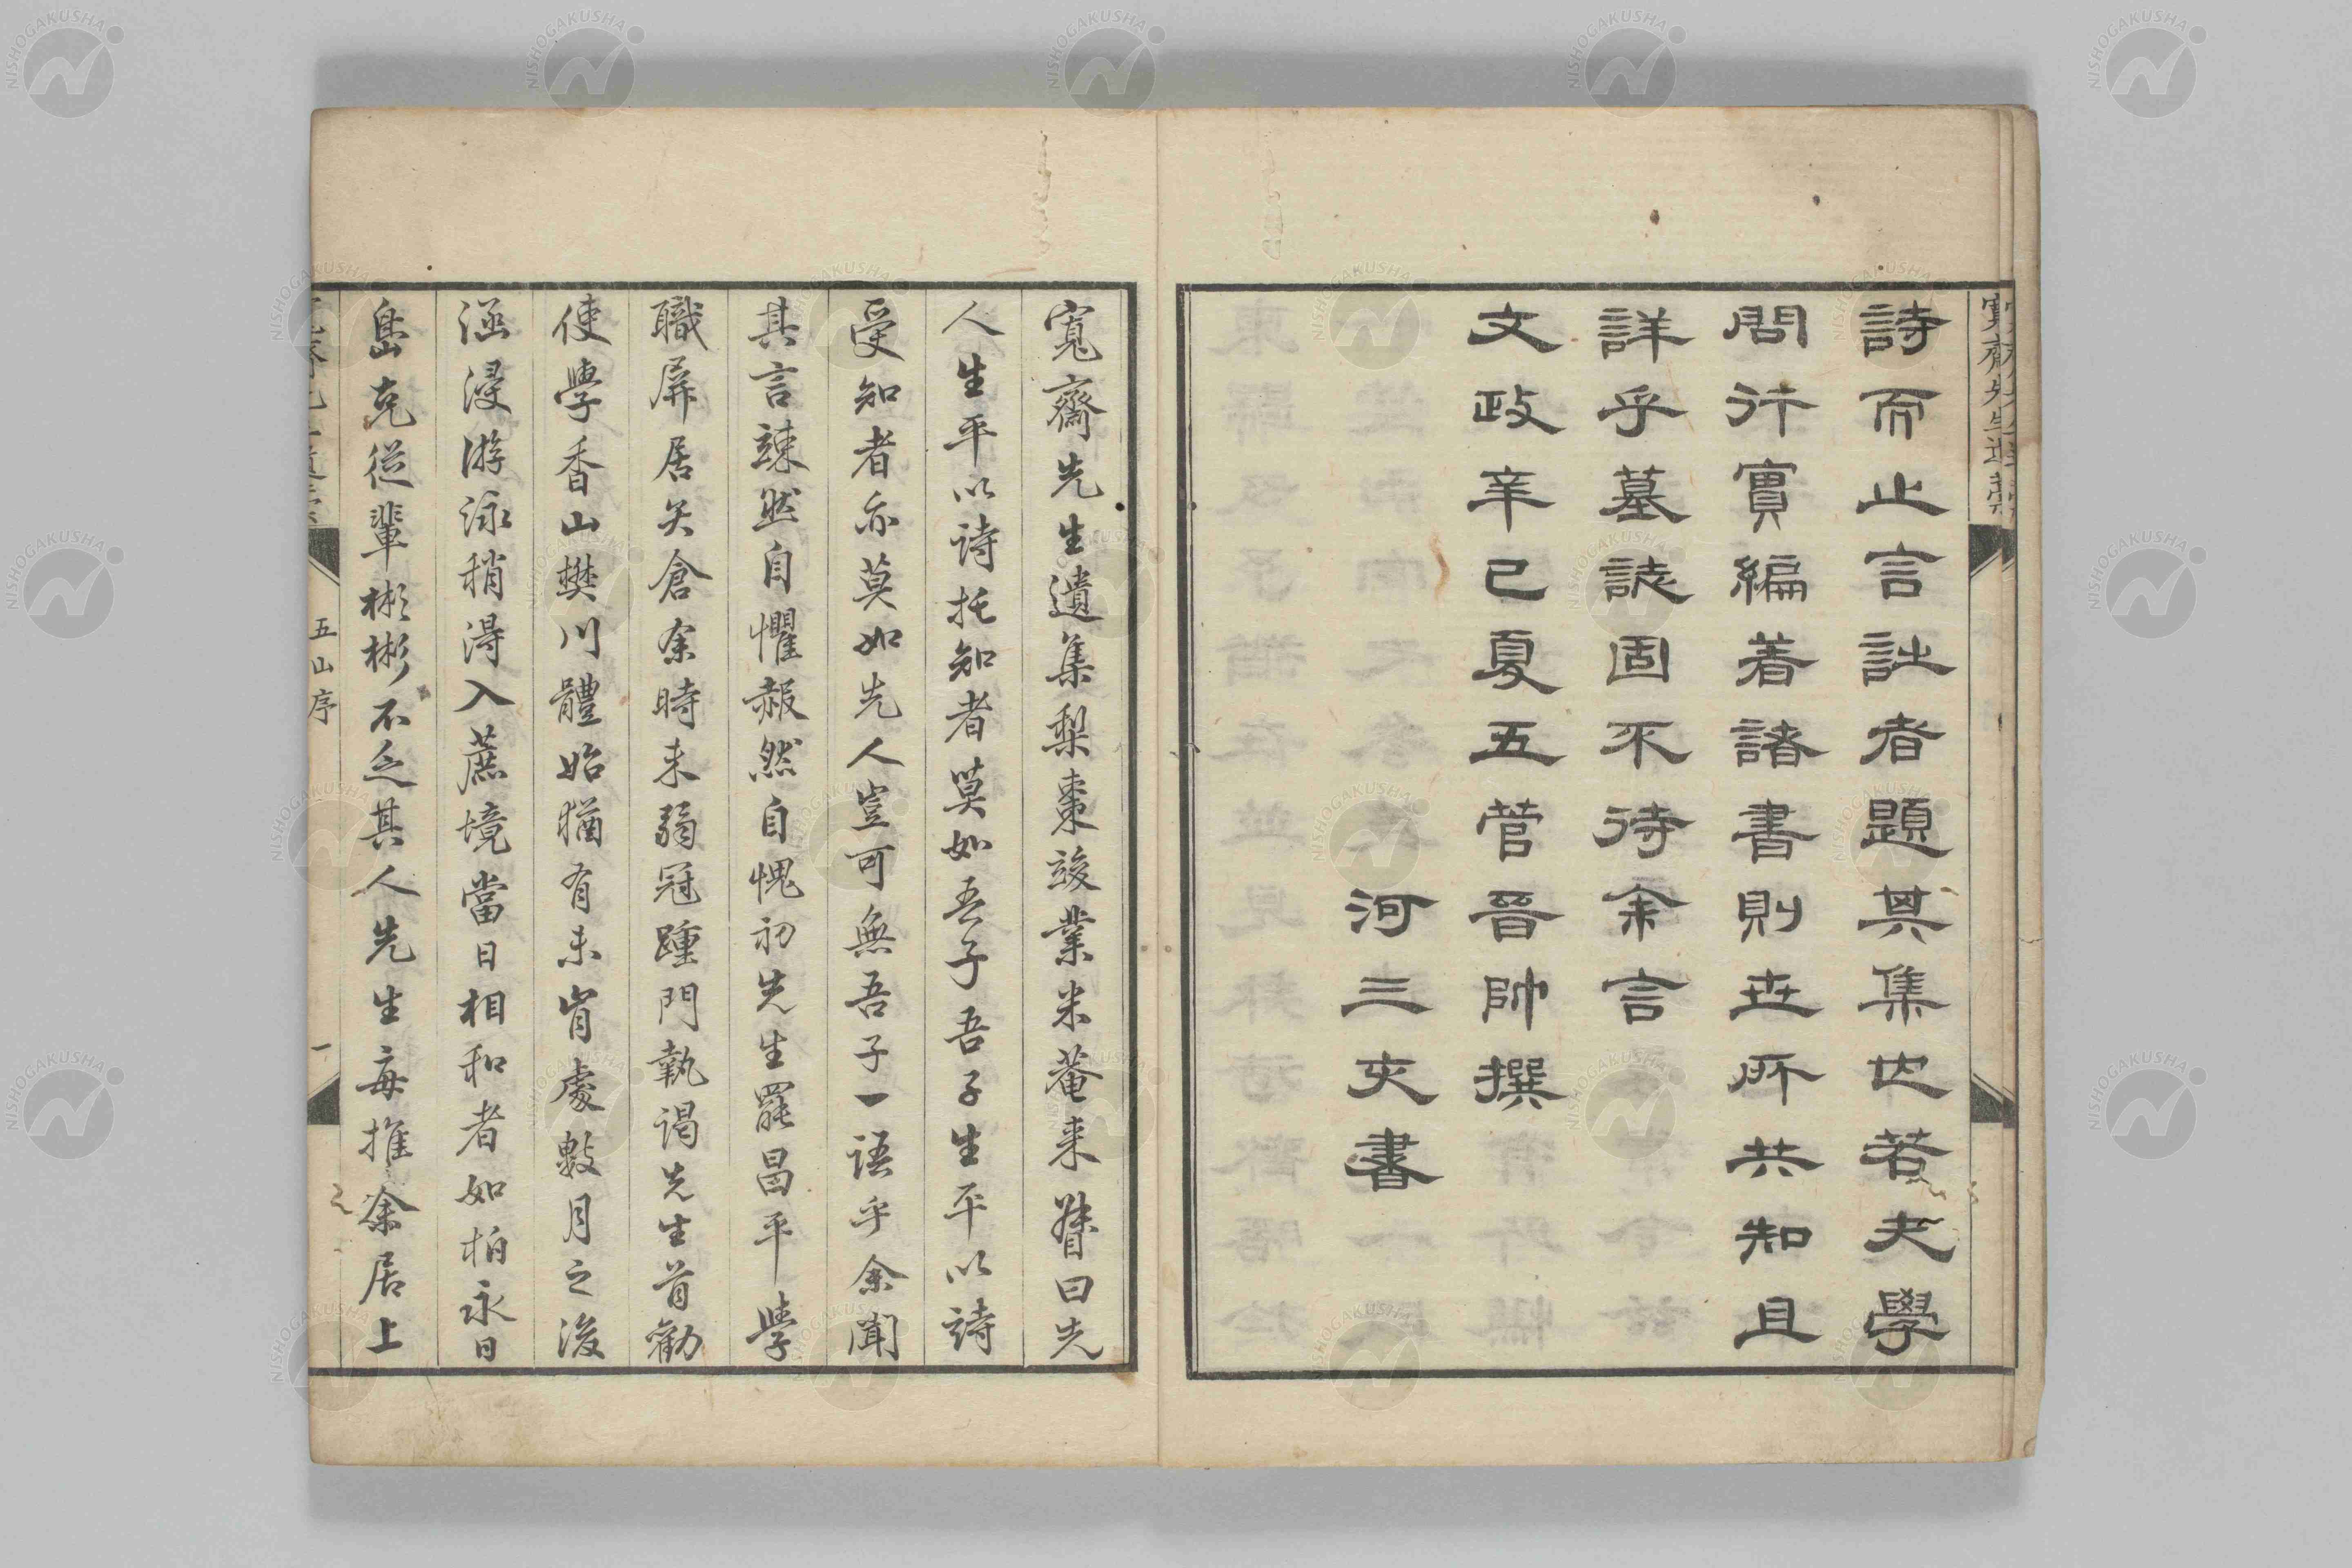 寛齋先生遺藁
詩而止言詿者題其集也若夫學
問行實編著諸書則世所共知且
詳乎墓誌固不待余言
文政辛巳夏五菅晉帥撰
河三亥書
寬齋先生遺集梨棗竣業米菴来督曰先
人生平以詩托知者莫如吾子吾子生平以詩
受知者亦莫如先人豈可無吾子一語乎余聞
其言竦然自懼赧然自愧初先生罷昌平學
職屏居矢倉余時未弱冠踵門執謁先生首勸
使學香山樊川體始猶有未肯處數月之後
涵浸游泳稍得入蔗境當日相和者如柏永日
島克從輩彬彬不乏其人先生每推余居上
五山序
一
NISHOGAKUSHA